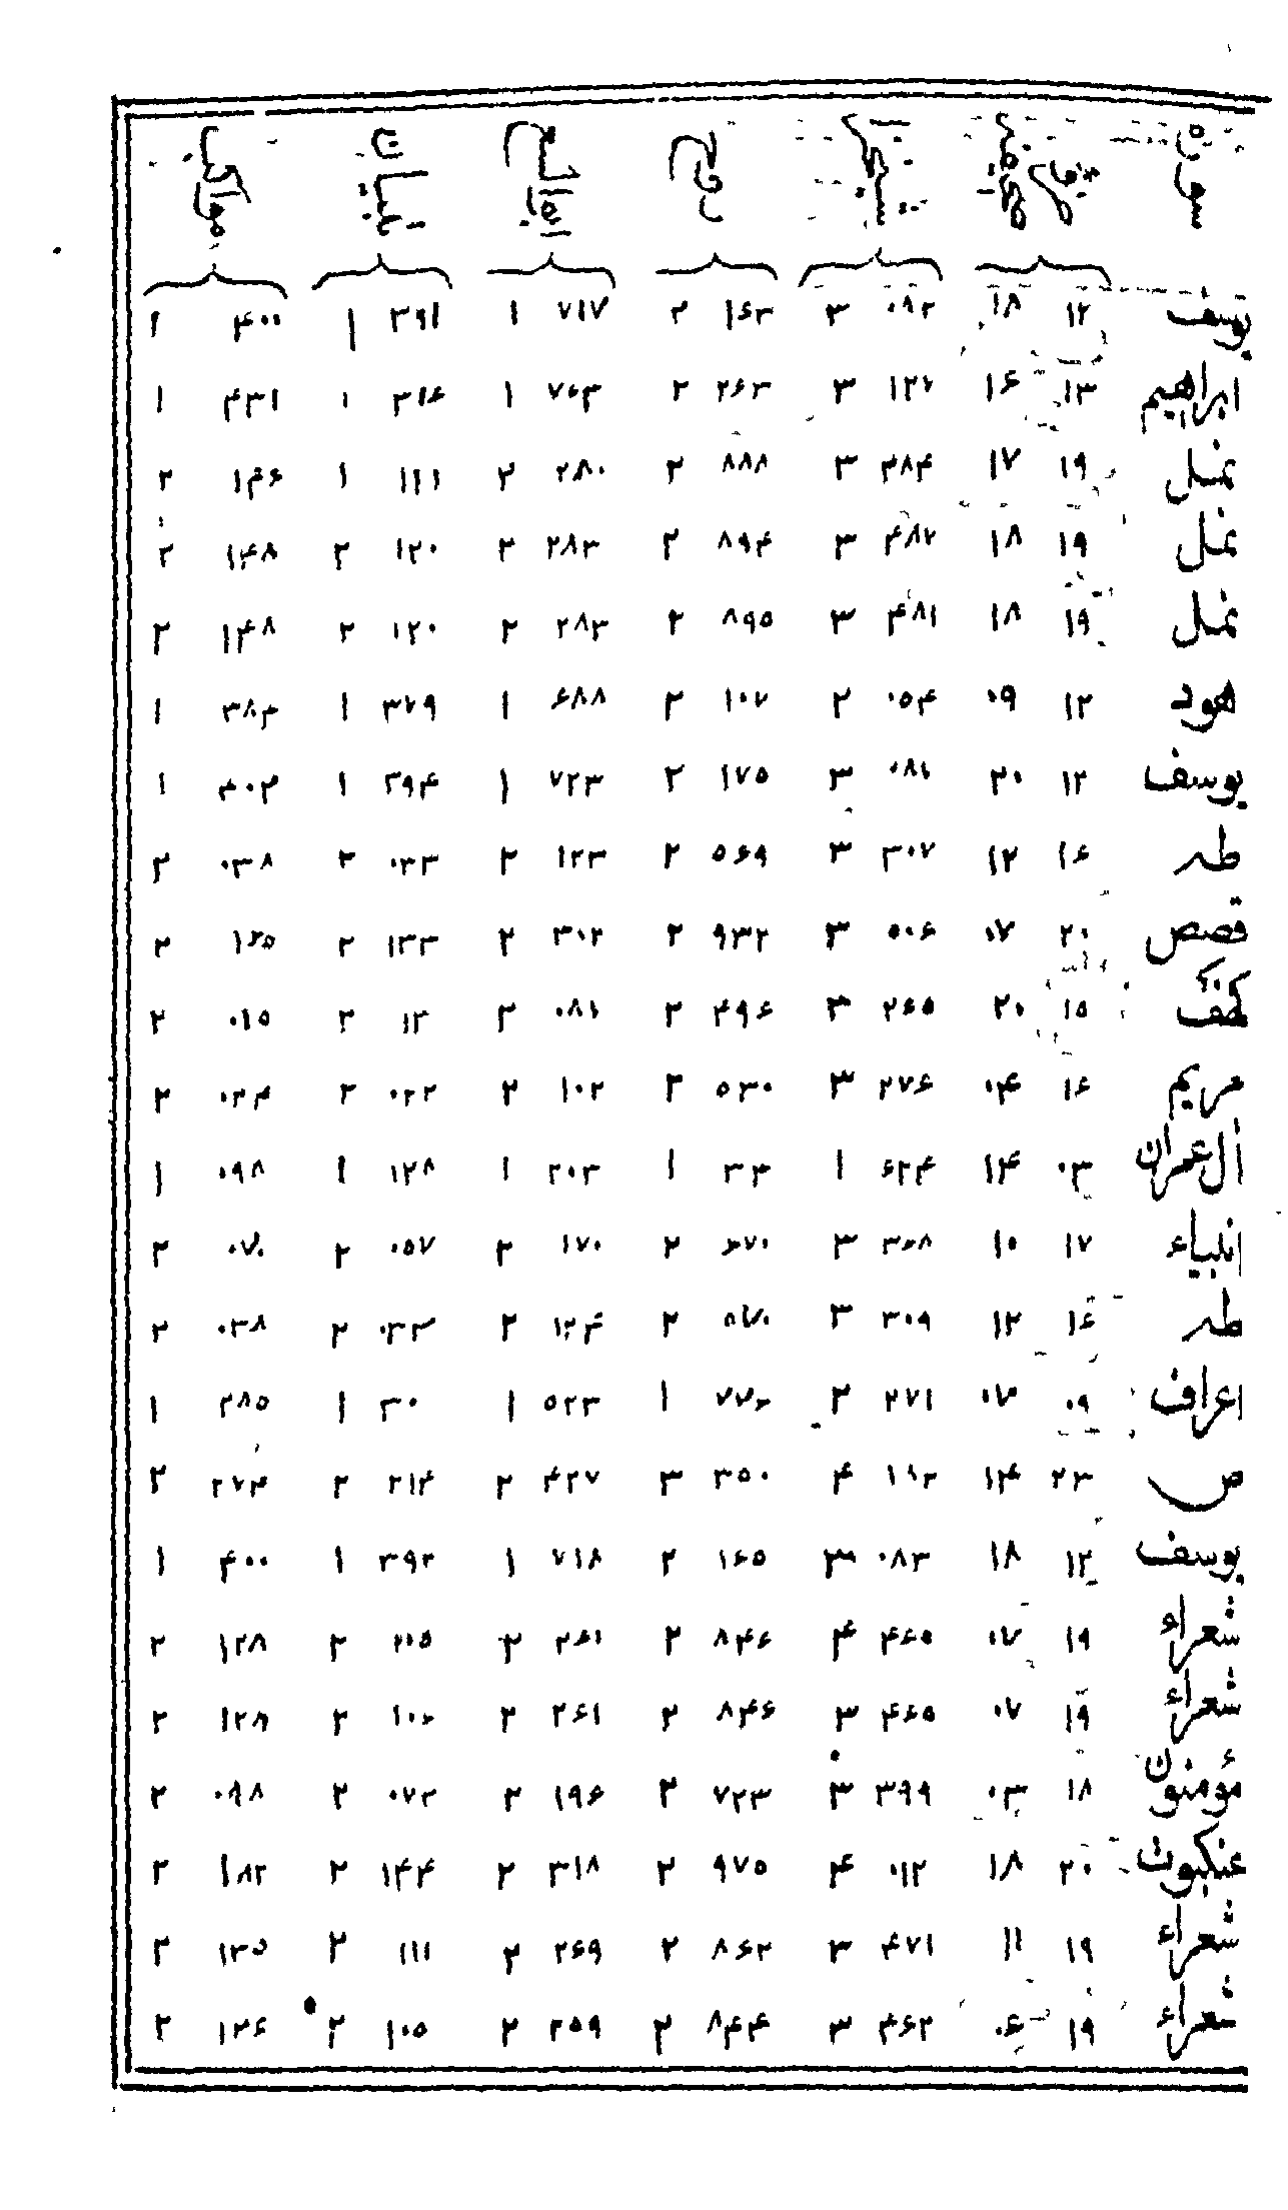 یوسف ۱۲ ۱۸ ۰۸۲ ۳ ۱۶۳ ۲ ۷۱۷ ۱ ۳۹۱ ۱ ۴۰۰ ۱
ابراهیم ۱۳ ۱۶ ۱۲۷ ۳ ۲۶۳ ۲ ۷۶۳ ۱ ۳۱۶ ۱ ۴۳۱ ۱
نمل ۱۹ ۱۷ ۴۸۴ ۳ ۸۸۸ ۲ ۲۸۰ ۲ ۱۱۱ ۱ ۱۴۶ ۲
نمل ۱۹ ۱۸ ۴۸۷ ۳ ۸۹۴ ۲ ۲۸۳ ۲ ۱۲۰ ۲ ۱۴۸ ۲
نمل ۱۹ ۱۸ ۴۸۱ ۳ ۸۹۵ ۲ ۲۸۳ ۲ ۱۲۰ ۲ ۱۴۸ ۲
هود ۱۲ ۰۹ ۰۵۴ ۲ ۱۰۷ ۲ ۶۸۸ ۱ ۳۷۹ ۱ ۳۸۴ ۱
یوسف ۱۲ ۲۰ ۰۸۷ ۳ ۱۷۵ ۲ ۷۲۳ ۱ ۳۹۴ ۱ ۴۰۳ ۱
طه ۱۶ ۱۲ ۳۰۷ ۳ ۵۶۹ ۲ ۱۲۳ ۲ ۰۳۳ ۲ ۰۳۸ ۲
قصص ۲۰ ۰۷ ۵۰۶ ۳ ۹۳۲ ۲ ۳۰۲ ۲ ۱۳۳ ۲ ۱۶۵ ۲
کهف ۱۵ ۲۰ ۲۶۵ ۳ ۴۹۶ ۲ ۰۸۷ ۲ ۱۲ ۲ ۰۱۵ ۲
مریم ۱۶ ۰۴ ۲۷۶ ۳ ۵۳۰ ۲ ۱۰۲ ۲ ۰۲۲ ۲ ۰۲۴ ۲
آل عمران ۰۳ ۱۴ ۶۲۴ ۱ ۳۳ ۱ ۲۰۳ ۱ ۱۲۸ ۱ ۰۹۸ ۱
انبیاء ۱۷ ۱۰ ۳۶۸ ۳ ۶۷۰ ۲ ۱۷۰ ۲ ۰۵۷ ۲ ۰۷۰ ۲
طه ۱۶ ۱۲ ۳۰۹ ۳ ۵۷۰ ۲ ۱۲۴ ۲ ۰۳۳ ۲ ۰۳۸ ۲
اعراف ۰۹ ۰۷ ۲۷۱ ۲ ۷۷۲ ۱ ۵۲۳ ۱ ۳۰ ۱ ۲۸۵ ۱
ص ۲۳ ۱۴ ۱۸۲ ۴ ۳۵۰ ۳ ۴۲۷ ۲ ۲۱۴ ۲ ۲۷۴ ۲
یوسف ۱۲ ۱۸ ۰۸۳ ۳ ۱۶۵ ۲ ۷۱۸ ۱ ۳۹۲ ۱ ۴۰۰ ۱
شعراء ۱۹ ۰۷ ۴۶۵ ۴ ۸۴۶ ۲ ۲۶۱ ۲ ۲۰۵ ۲ ۱۲۸ ۲
شعراء ۱۹ ۰۷ ۴۶۵ ۳ ۸۴۶ ۲ ۲۶۱ ۲ ۱۰۶ ۲ ۱۲۸ ۲
مؤمنون ۱۸ ۰۳ ۳۹۹ ۳ ۷۲۳ ۲ ۱۹۶ ۲ ۰۷۲ ۲ ۰۹۸ ۲
عنکبوت ۲۰ ۱۸ ۰۱۲ ۴ ۹۷۵ ۲ ۳۱۸ ۲ ۱۴۴ ۲ ۱۸۲ ۲
شعراء ۱۹ ۱۱ ۴۷۱ ۳ ۸۶۲ ۲ ۲۶۹ ۲ ۱۱۱ ۲ ۱۳۵ ۲
شعراء ۱۹ ۰۶ ۴۶۲ ۳ ۸۴۴ ۲ ۲۵۹ ۲ ۱۰۵ ۲ ۱۲۶ ۲